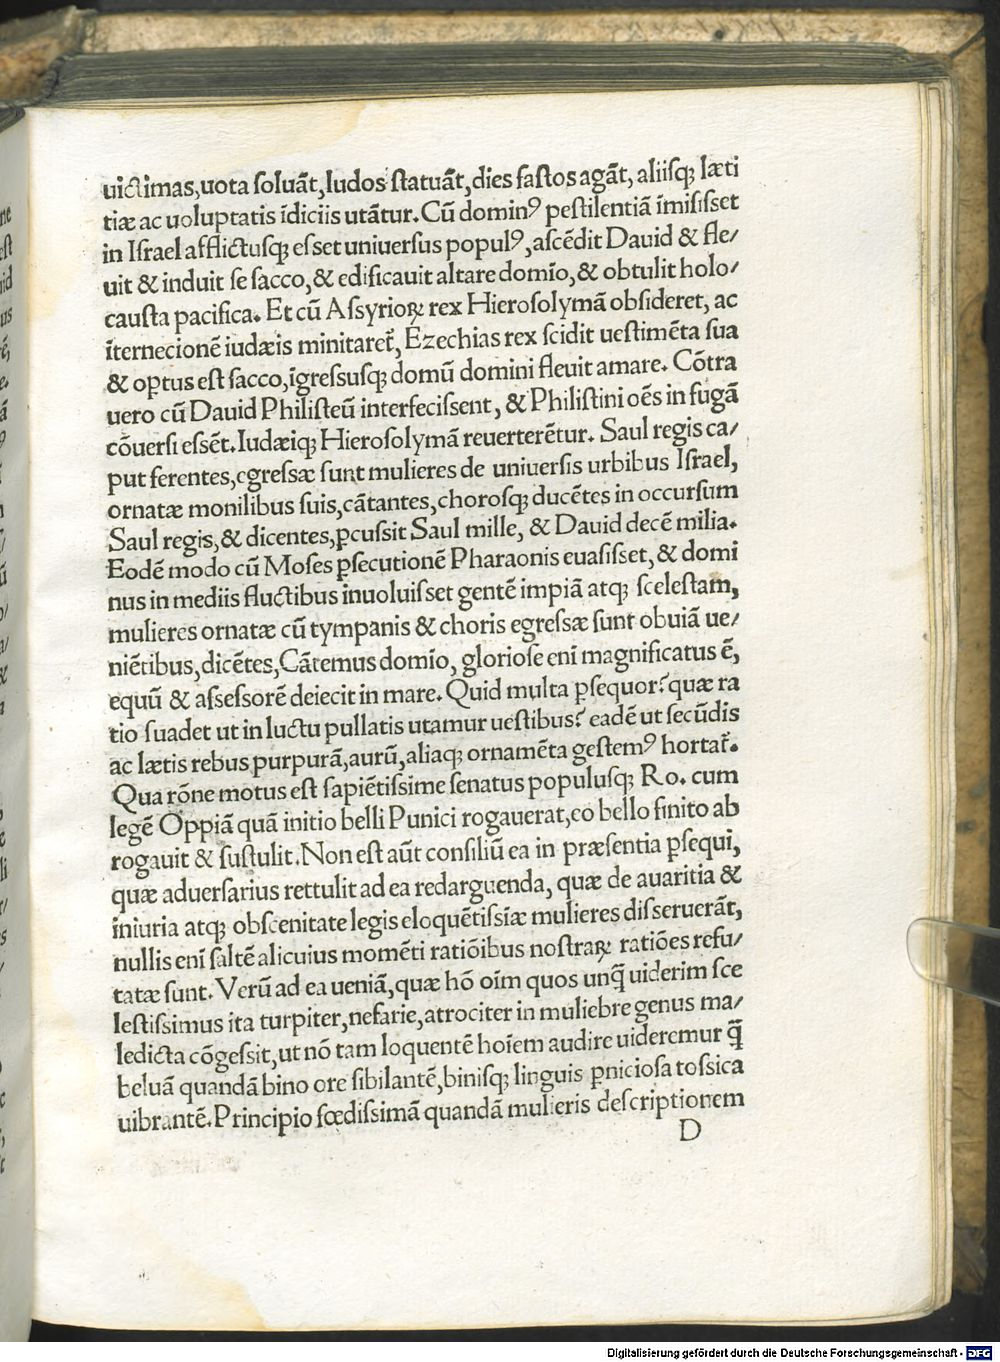 uictimas,uota soluãt,ludos statuãt,dies fastos agãt, aliisq; læti
tiæ ac uoluptatis ĩdiciis utãtur. Cũ dominꝰ pestilentiã ĩmisisset
in Israel afflictusq; esset uniuersus populꝰ,ascẽdit Dauid & fle/
uit & induit se sacco,& edificauit altare domĩo,& obtulit holo/
causta pacifica. Et cũ Assyrioꝝ rex Hierosolymã obsideret, ac
ĩternecionẽ iudæis minitaret̃, Ezechias rex scidit uestimẽta sua
& optus est sacco,ĩgressusq; domũ domini fleuit amare. Cõtra
uero cũ Dauid Philisteũ interfecissent, & Philistini oẽs in fugã
cõuersi essẽt.Iudæiq; Hierosolymã reuerterẽtur. Saul regis ca/
put ferentes,egressæ sunt mulieres de uniuersis urbibus Israel,
ornatæ monilibus suis,cãtantes,chorosq; ducẽtes in occursum
Saul regis,& dicentes,ꝑcussit Saul mille, & Dauid decẽ milia.
Eodẽ modo cũ Moses ꝑsecutionẽ Pharaonis euasisset,& domi
nus in mediis fluctibus inuoluisset gentẽ impiã atq; scelestam,
mulieres ornatæ cũ tympanis & choris egressæ sunt obuiã ue/
niẽtibus,dicẽtes,Cãtemus domĩo, gloriose enĩ magnificatus ẽ,
equũ & assessorẽ deiecit in mare. Quid multa ꝑsequor? quæ ra
tio suadet ut in luctu pullatis utamur uestibus? eadẽ ut secũdis
ac lætis rebus purpurã,aurũ,aliaq; ornamẽta gestemꝰ hortat̃.
Qua rõne motus est sapiẽtissime senatus populusq; Ro. cum
legẽ Oppiã quã initio belli Punici rogauerat,eo bello finito ab
rogauit & sustulit.Non est aũt consiliũ ea in præsentia ꝑsequi,
quæ aduersarius rettulit ad ea redarguenda, quæ de auaritia &
iniuria atq; obscenitate legis eloquẽtissĩæ mulieres disseruerãt,
nullis enĩ saltẽ alicuius momẽti ratiõibus nostraꝝ ratiões refu/
tatæ sunt. Verũ ad ea ueniã,quæ hõ oĩm quos unq̃ uiderim sce
lestissimus ita turpiter,nefarie,atrociter in muliebre genus ma/
ledicta cõgessit,ut nõ tam loquentẽ hoĩem audire uideremur q̃
beluã quandã bino ore sibilantẽ,binisq; linguis ꝑniciosa tossica
uibrantẽ.Principio fœdissimã quandã mulieris descriptionem
D
Digitalisierung gefördert durch die Deutsche Forschungsgemeinschaft - DFG